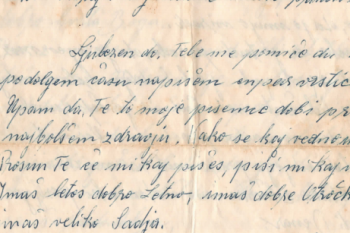 Ljubezen do Tebe me pomiče da
podolgem času napišem enpar vrstic
Upam da, Te to moje pisemce dobi pr
najbolšem zdravju. Kako se kaj vedno
Prosim Te če mi kaj pišeš, piši mi kaj
Imaš letos dobro Letno, imaš dobre Otročk
imaš veliko Sadja.